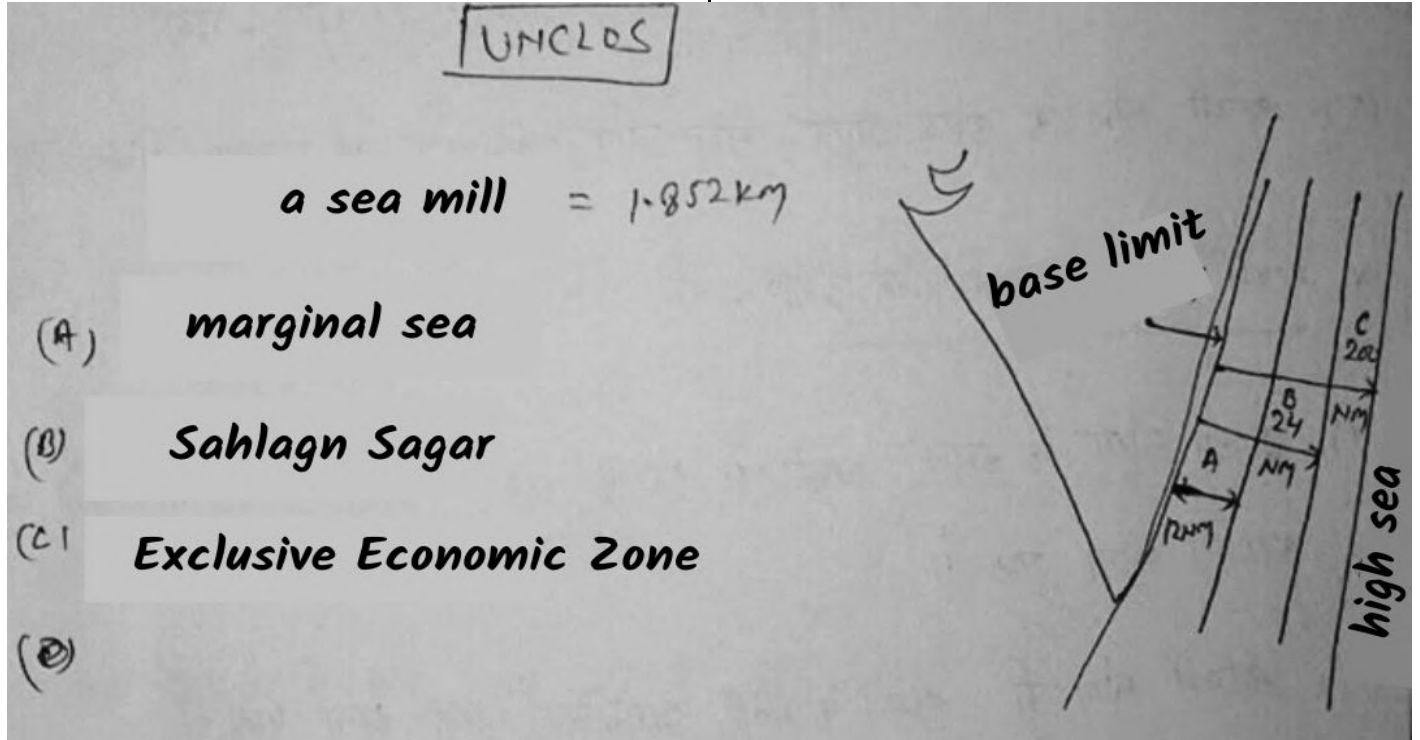 UNCLOS
a sea mill = 1.852 km
(A) marginal sea
(B) Sahlagn Sagar
(C) Exclusive Economic Zone
base limit
C
200
NM
B
24
NM
A
12NM
high sea